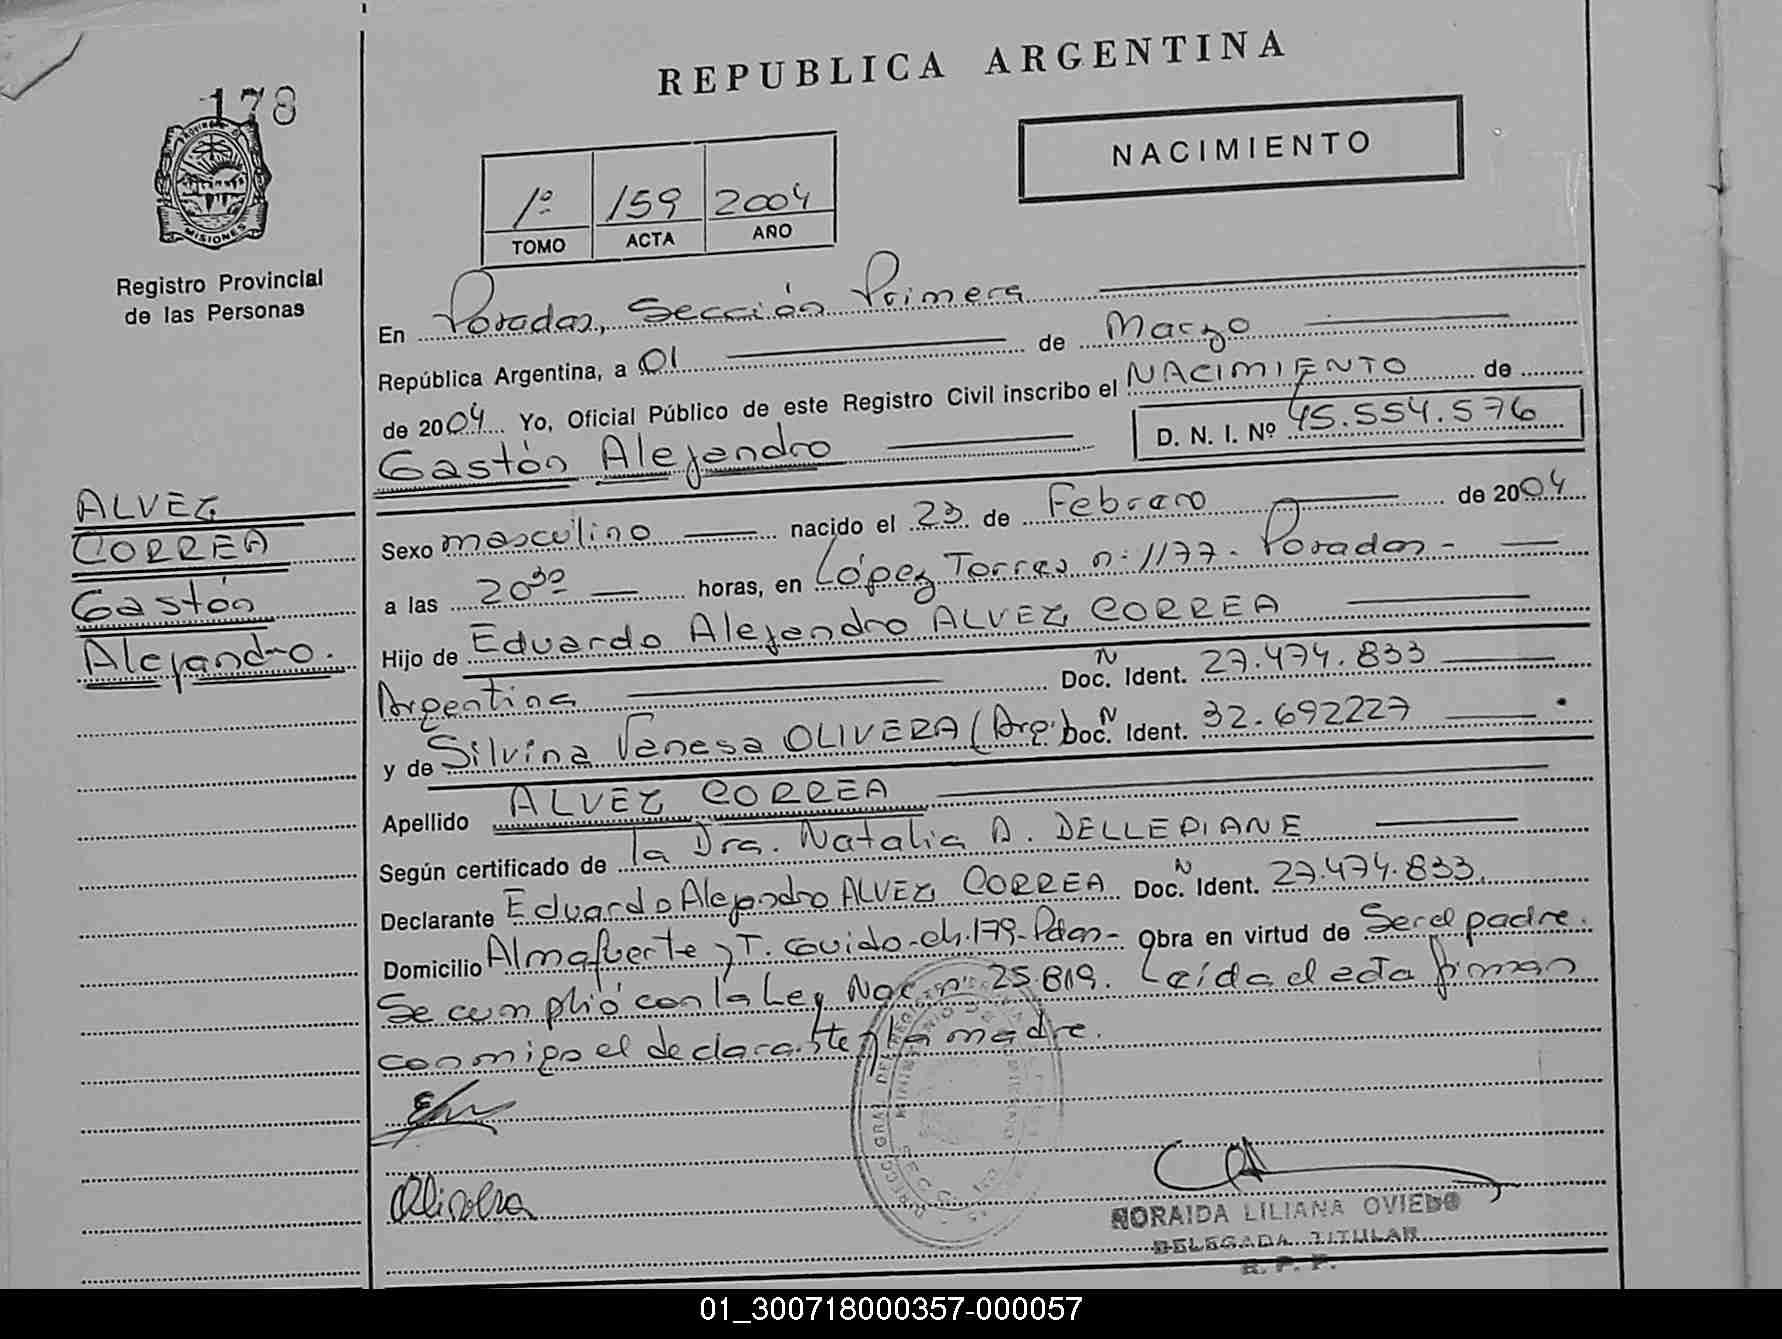 178
PROVINCIA D
MISIONES
Registro Provincial
de las Personas
REPUBLICA ARGENTINA
NACIMIENTO
1º 159 2004
TOMO ACTA AÑO
En Posadas, Sección Primera
República Argentina, a 01 de Marzo
de 2004 Yo, Oficial Público de este Registro Civil inscribo el NACIMIENTO de
Gastón Alejandro D. N. I. Nº 45.554.576
ALVEZ
CORREA
Gastón
Alejandro.
Sexo masculino nacido el 23 de Febrero de 2004
a las 20³⁰ horas, en López Torres n: 1177. Posadas -
Hijo de Eduardo Alejandro ALVEZ CORREA
Argentina Doc. N Ident. 27.474.833
y de Silvina Vanesa OLIVERA (Arg.) Doc. N Ident. 32.692227
Apellido ALVEZ CORREA
Según certificado de la Dra. Natalia A. DELLEPIANE
Declarante Eduardo Alejandro ALVEZ CORREA Doc. N Ident. 27.474.833.
Domicilio Almafuerte y T. Couido-ch.179-Pdas- Obra en virtud de Ser el padre.
Se cumplió con la Ley Nac. nº 25.819. Leída el acta firman
conmigo el declarante y la madre.
Olivera
NORAIDA LILIANA OVIEDO
DELEGADA TITULAR
R. P. P.
01_300718000357-000057